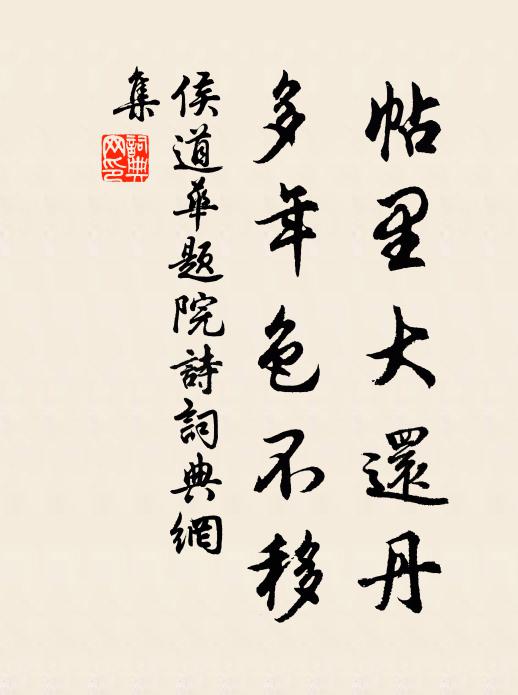 帖里大還丹
多年色不移
侯道華題院詩詞典網
集
詞典
网印